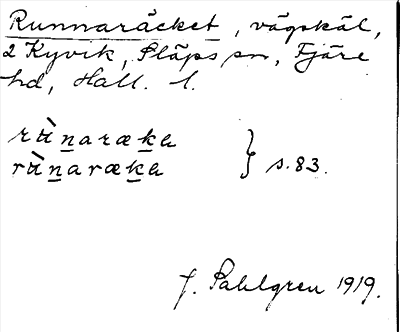 Runnaräcket, vägskäl,
2 Kyvik, Släps sn, Fjäre
hd, Hall. l.
rùnaræka } s. 83.
rùnaræka
J. Sahlgren 1919.